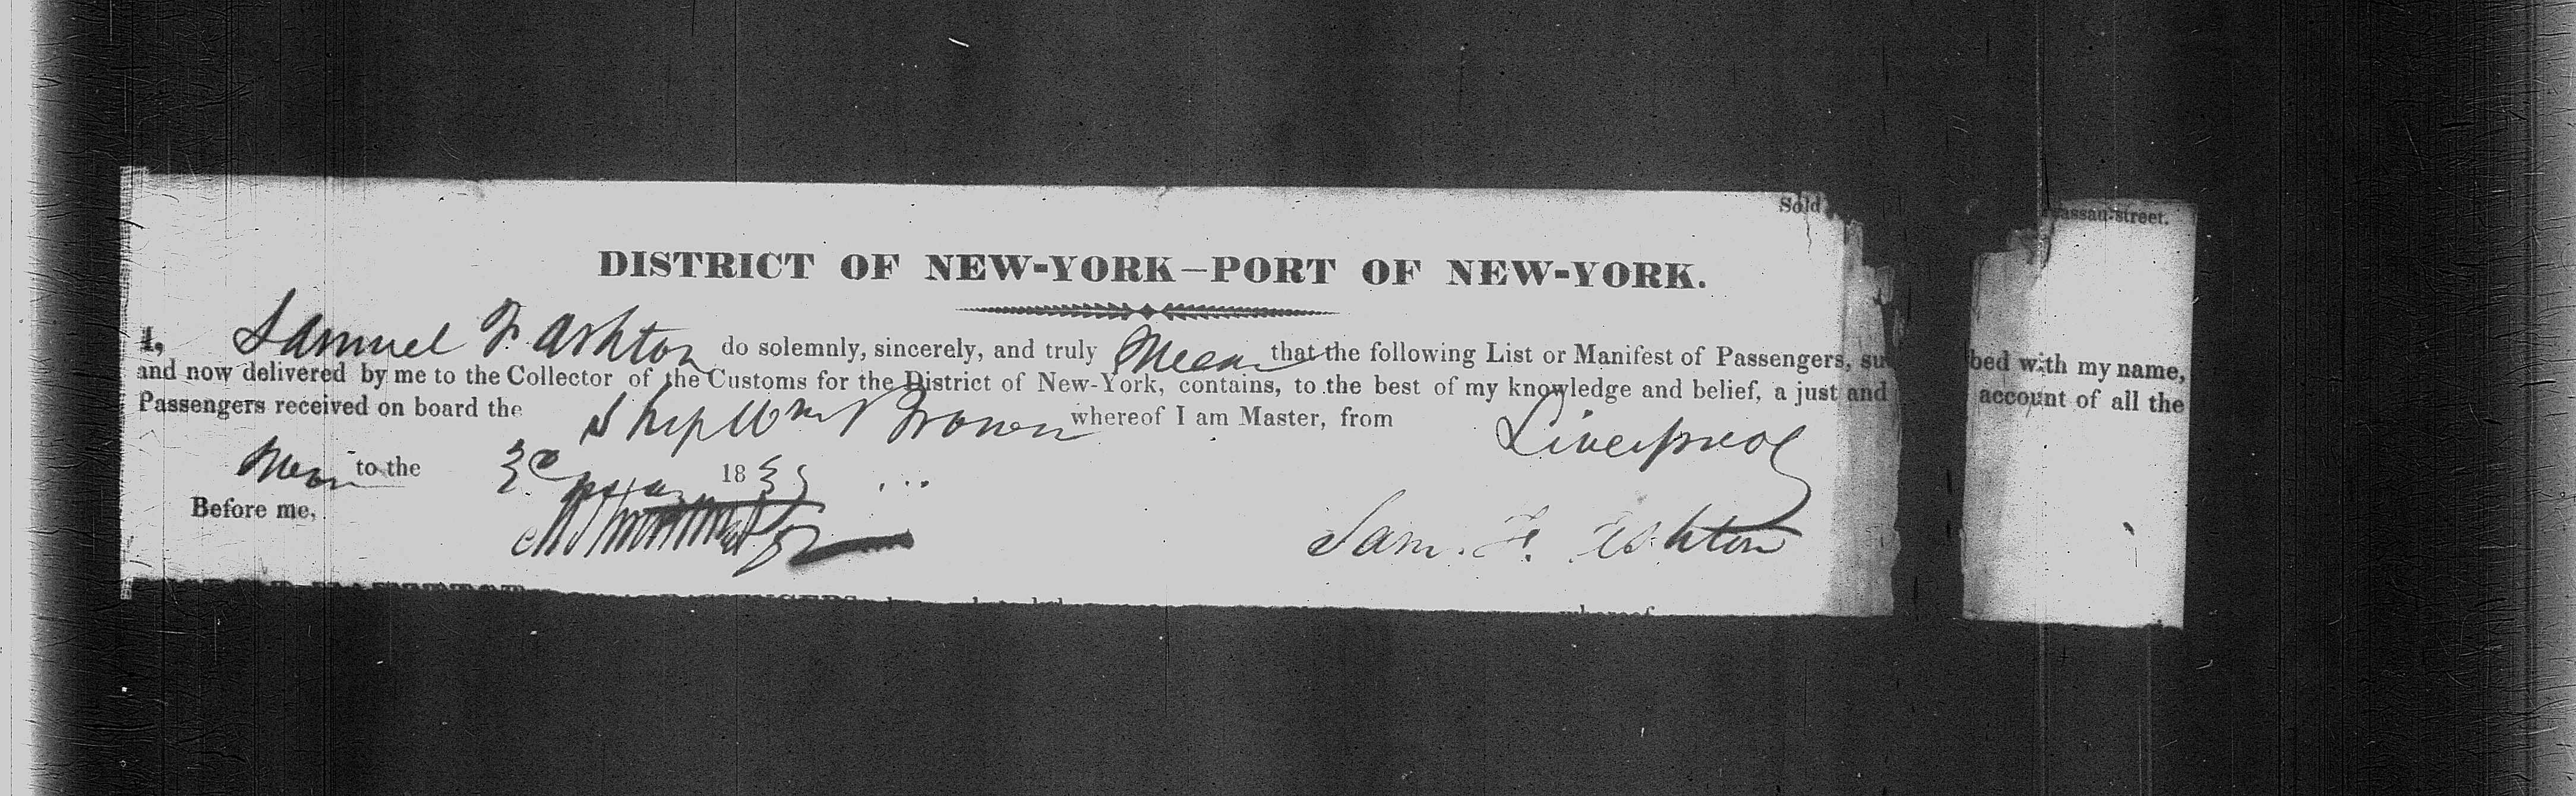 Sold
assau-street.
DISTRICT OF NEW-YORK—PORT OF NEW-YORK.
I, Samuel F Ashton do solemnly, sincerely, and truly that the following List or Manifest of Passengers, su bed with my name,
and now delivered by me to the Collector of the Customs for the District of New-York, contains, to the best of my knowledge and belief, a just and account of all the
Passengers received on board the Ship Wm Brown whereof I am Master, from Liverpool
to the 18
Before me,
Sam. F. Ashton
whereof